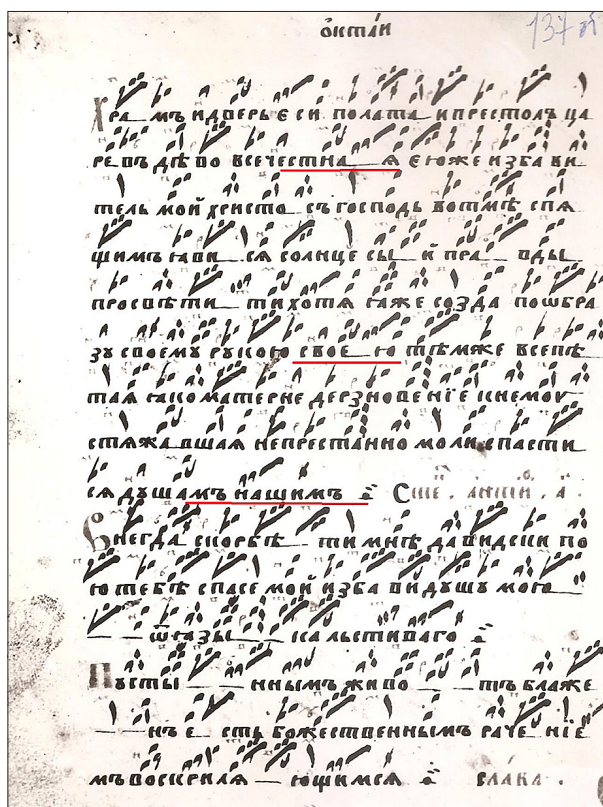 ѻктаи 137
Храмъ идверь еси полата ипрестолъ ца
ревъ дѣво всечестна_я еюже изба ви
тель мой христо съ господь вотмѣ спя
щимъ ꙗви_ся солнце сы_й пра_вды
просвѣти_ти хотя ꙗже созда поѡбра
зу своему рукою своe_ю тѣмже всепѣ
тая ꙗко матерне дерзновенїе кнемоу
стяжавшая непрестанно моли спасти
ся душамъ нашимъ
Внегда скорбѣ_ти мнѣ давидски по
ю тебѣ спасе мой изба ви душу мою
_ _ ѿ ꙗзы_ ка льстиваго
Пусты_ _ннымъ живо_ _тъ блаже
_ _нъ е_сть божественнымъ раче_нїе
мъ воскриля_ющимся слава